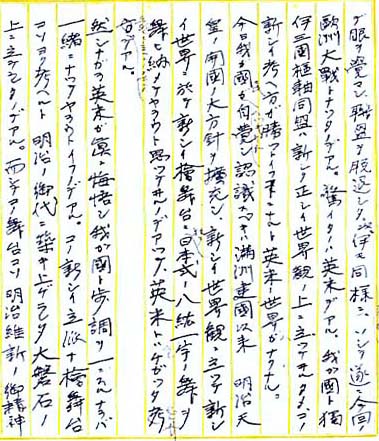 ガ眼ヲ覚マシ、聯盟ヲ脱退シタ。伊モ同様ニ、ソシテ遂ニ今回
欧洲大戦トナツタノデアル。驚イタノハ英米デアル。我ガ国ト独
伊三国枢軸同盟ハ新シク正シイ世界観ノ上ニ立ツテヰル
新シイ考ヘ方ガ勝ツ 英米ノ世界ガナクナル。
今日我ガ国ガ自覚シ認識スベキハ満洲建国以来 明治天
皇ノ開国ノ大方針ヲ擴充シ、新シイ世界観ニ立ツテ新シ
イ世界ニ於テ新シイ檜舞台ニ日本式ノ八紘一宇ノ舞ヲ
舞ヒ納メヤウト思ツテヰルノデアツテ、英米トハケガフ
デアル。
然シナガラ英米ガ真ニ悔悟シ我ガ国ト歩調ヲ ナラバ
一緒ニナツテヤラウトイフノデアル。コノ新シイ立派ナ檜舞台
コソヨク考ヘルト 明治ノ御代ニ築キ上ゲラレタ大磐石ノ
上ニ立ツテヰルノデアル。而シテコノ舞台コソ明治維新ノ御精神